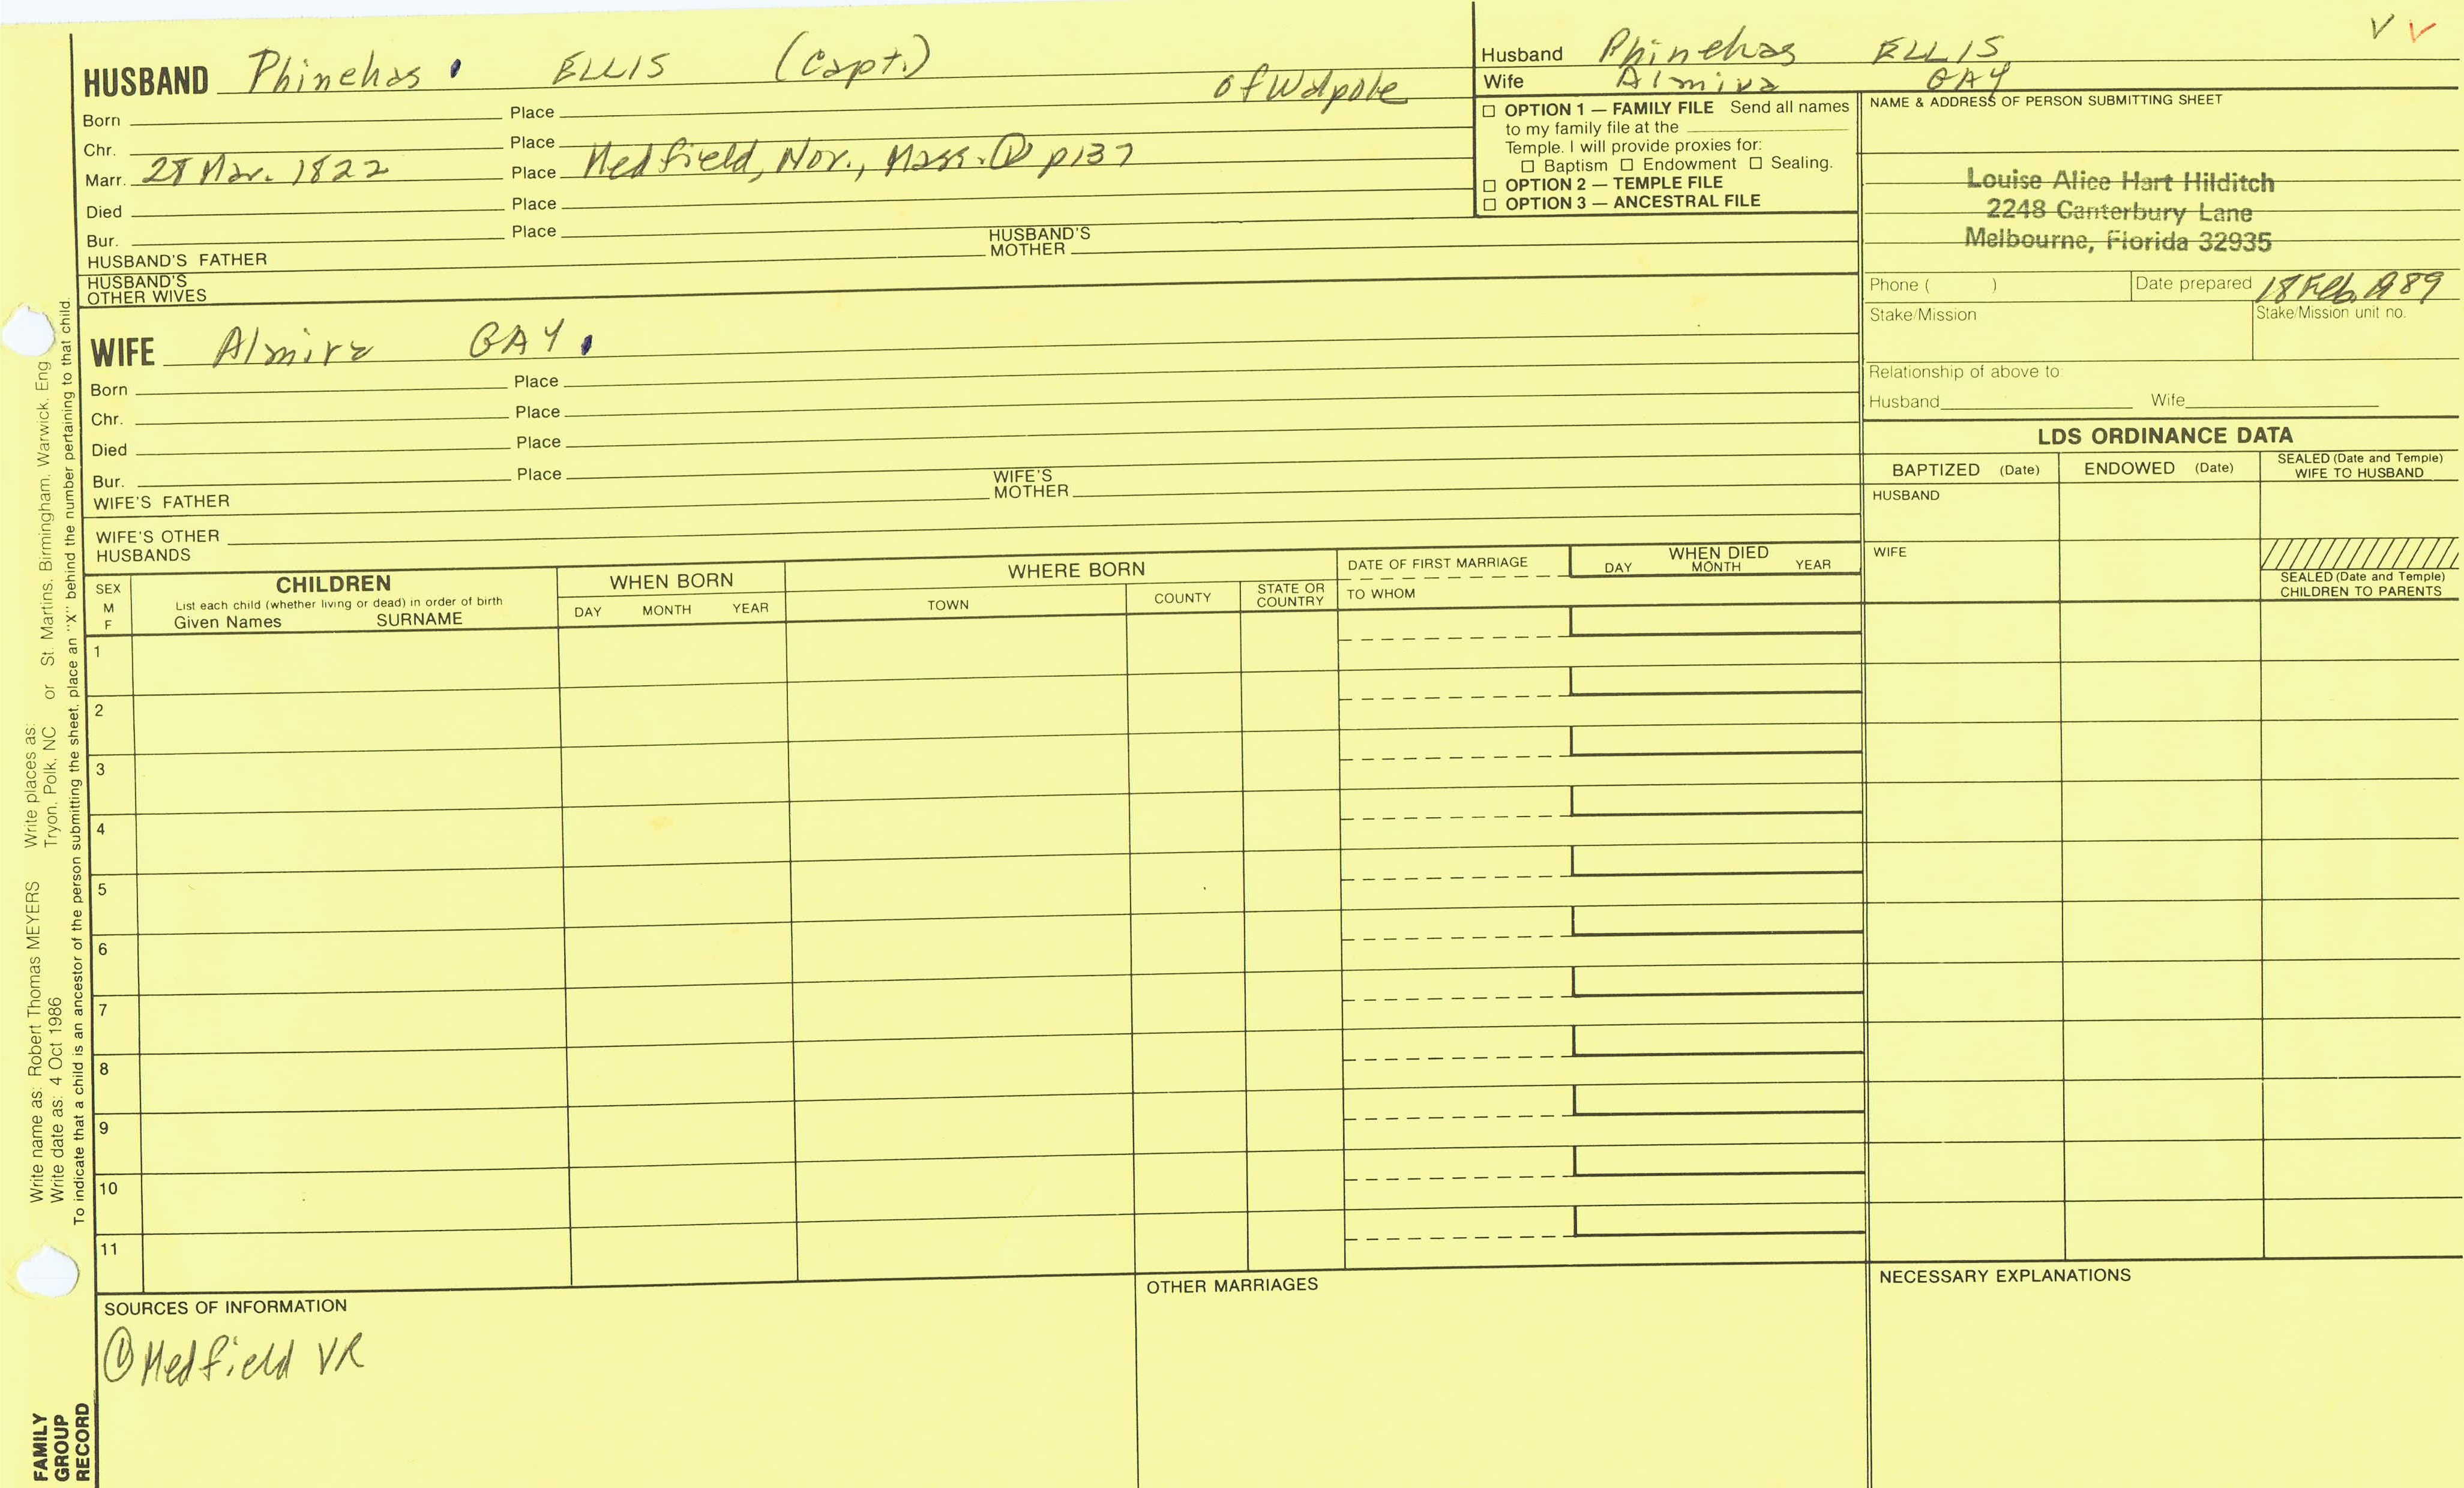 HUSBAND Phinehas ELLIS (Capt.) of Walpole
Born Place
Chr. Place
Marr. 28 Mar. 1822 Place Medfield, Nor., Mass. ① p137
Died Place
Bur. Place
HUSBAND'S FATHER HUSBAND'S MOTHER
HUSBAND'S OTHER WIVES
WIFE Almira GAY
Born Place
Chr. Place
Died Place
Bur. Place
WIFE'S FATHER WIFE'S MOTHER
WIFE'S OTHER HUSBANDS
Husband Phinehas ELLIS
Wife Almira GAY
V V
☐ OPTION 1 — FAMILY FILE Send all names
to my family file at the
Temple. I will provide proxies for:
☐ Baptism ☐ Endowment ☐ Sealing.
☐ OPTION 2 — TEMPLE FILE
☐ OPTION 3 — ANCESTRAL FILE
NAME & ADDRESS OF PERSON SUBMITTING SHEET
Louise Alice Hart Hilditch
2248 Canterbury Lane
Melbourne, Florida 32935
Phone ( ) Date prepared 18 Feb 1989
Stake/Mission Stake/Mission unit no.
Relationship of above to:
Husband Wife
LDS ORDINANCE DATA
BAPTIZED (Date) ENDOWED (Date) SEALED (Date and Temple) WIFE TO HUSBAND
HUSBAND
WIFE
SEALED (Date and Temple)
CHILDREN TO PARENTS
SEX M F
CHILDREN
List each child (whether living or dead) in order of birth
Given Names SURNAME
WHEN BORN
DAY MONTH YEAR
WHERE BORN
TOWN COUNTY STATE OR COUNTRY
DATE OF FIRST MARRIAGE
TO WHOM
WHEN DIED
DAY MONTH YEAR
1
2
3
4
5
6
7
8
9
10
11
SOURCES OF INFORMATION
① Medfield VR
OTHER MARRIAGES
NECESSARY EXPLANATIONS
Write name as: Robert Thomas MEYERS Write places as:
Write date as: 4 Oct 1986 Tryon, Polk, NC or St. Martins, Birmingham, Warwick, Eng
To indicate that a child is an ancestor of the person submitting the sheet, place an "X" behind the number pertaining to that child.
FAMILY
GROUP
RECORD